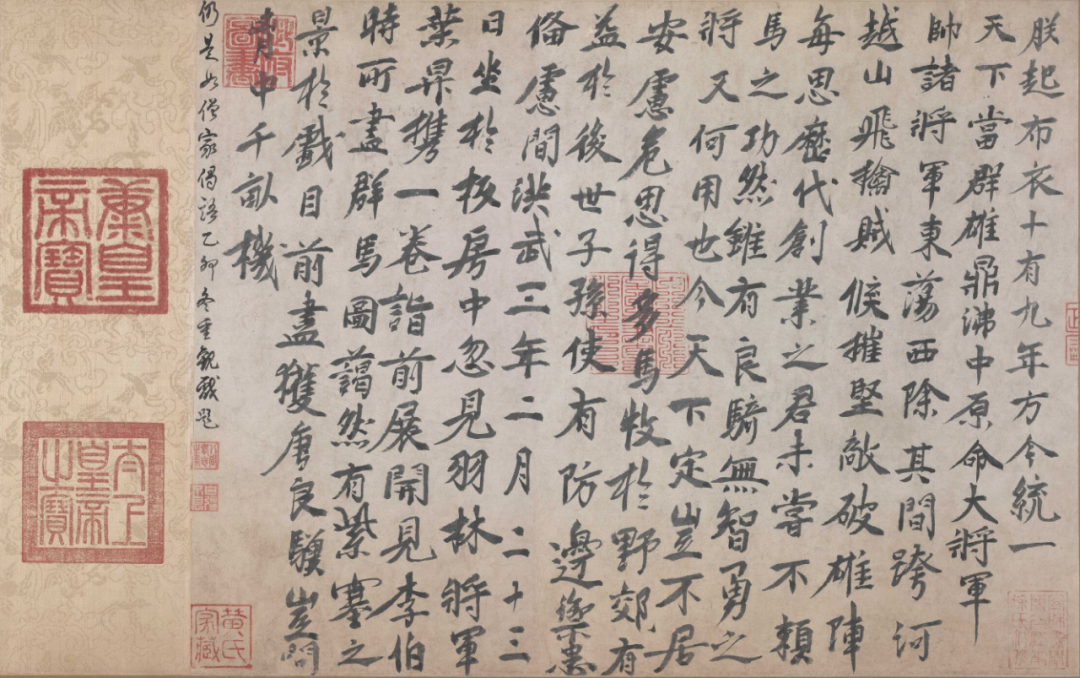 朕起布衣十有九年方今統一
天下當群雄鼎沸中原命大將軍
帥諸將軍東蕩西除其間跨河
越山飛擒賊候摧堅敵破雄陣
每思歷代創業之君未嘗不賴
馬之功然雖有良騎無智勇之
將又何用也今天下定豈不居
安慮危思得多馬牧於野郊有
益於後世子孫使有防邊禦患
俻慮間洪武三年二月二十三
日坐於板房中忽見羽林將軍
葉昇携一卷詣前展開見李伯
時所畫群馬圖藹然有紫塞之
景於戲目前盡獲唐良驥豈問
青中千畝機
仍是如僧家偈語乙卯冬重觀戲題
黃氏家藏
太上皇帝之寶